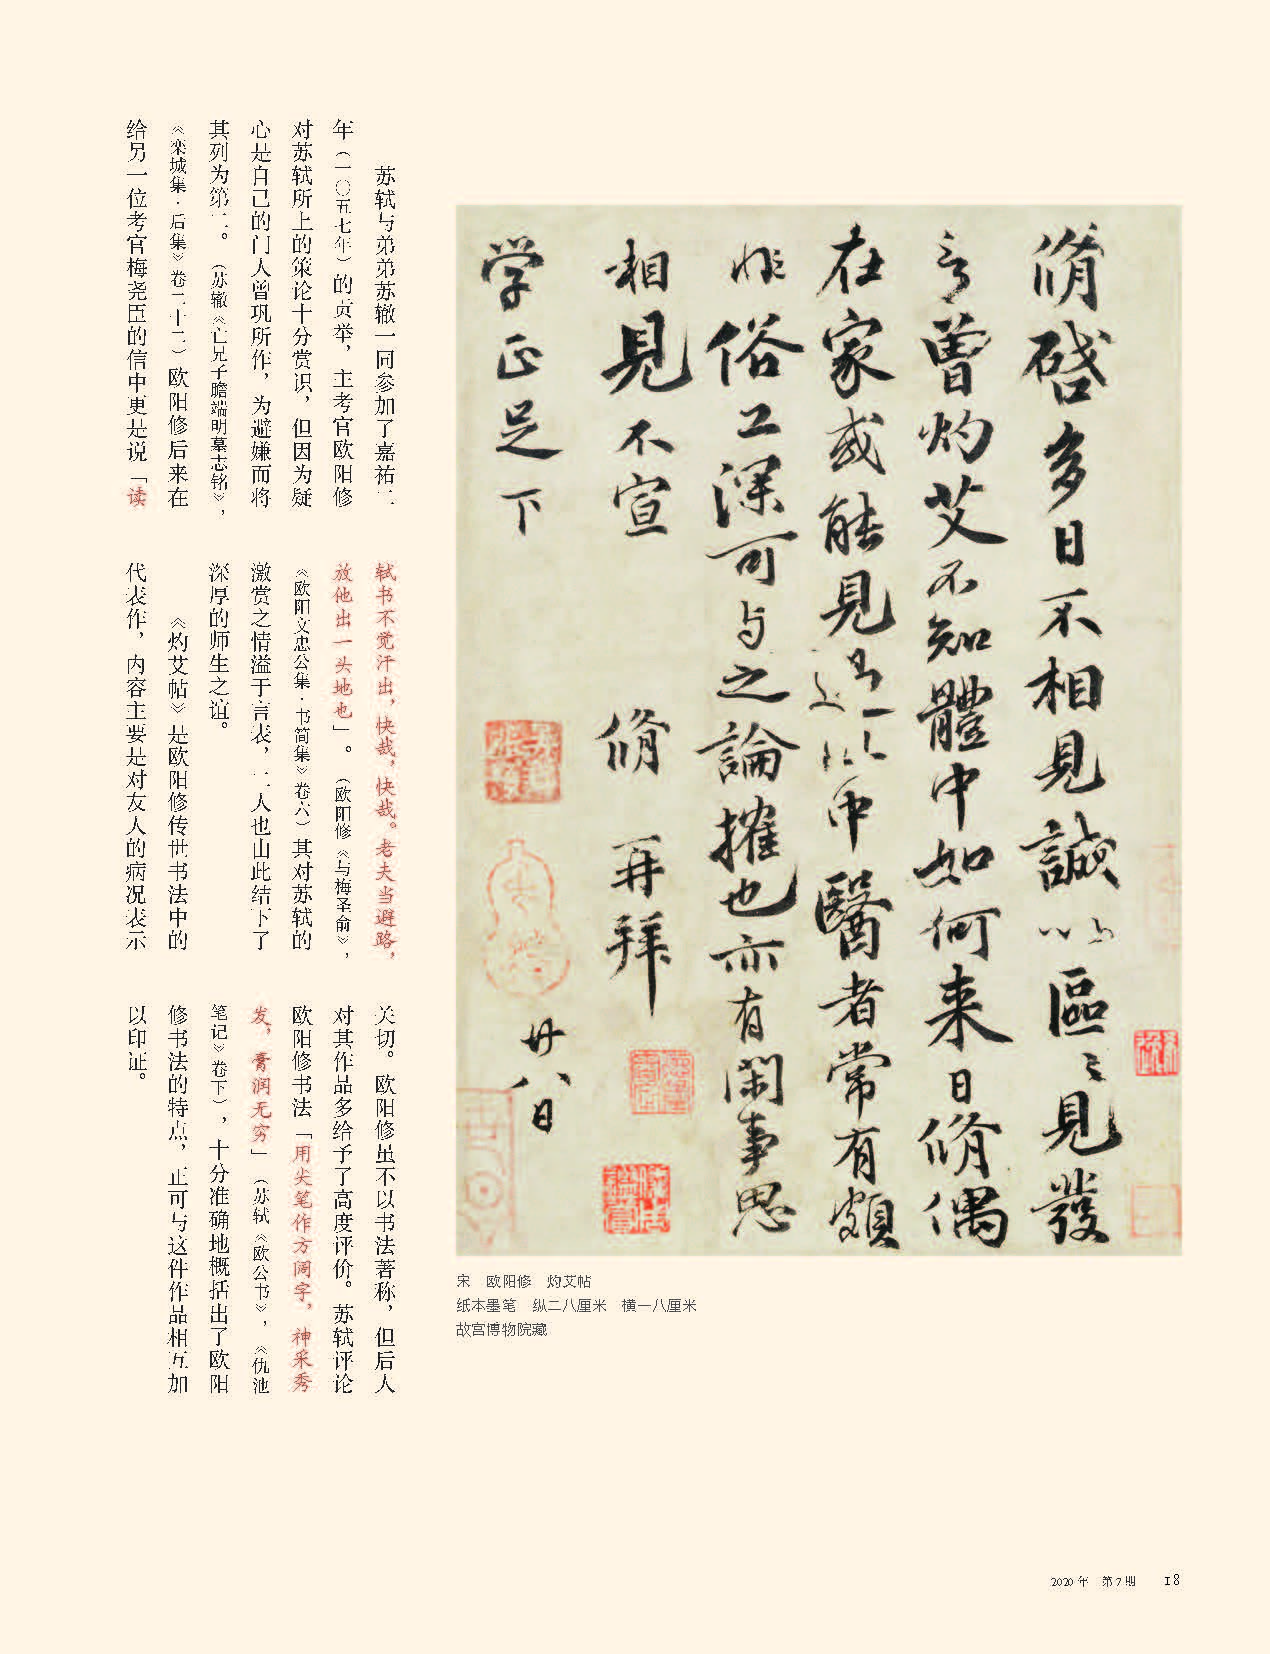 脩啓多日不相見誠以區區見發
言曾灼艾不知體中如何来日脩偶
在家或能見過此中醫者常有頗
非俗工深可与之論搉也亦有閑事思
相見不宣 脩再拜
廿八日
学正足下
宋 欧阳修 灼艾帖
纸本墨笔 纵二八厘米 横一八厘米
故宫博物院藏
苏轼与弟弟苏辙一同参加了嘉祐二
年（一〇五七年）的贡举，主考官欧阳修
对苏轼所上的策论十分赏识，但因为疑
心是自己的门人曾巩所作，为避嫌而将
其列为第二。（苏辙《亡兄子瞻端明墓志铭》，
《栾城集·后集》卷二十二）欧阳修后来在
给另一位考官梅尧臣的信中更是说「读
轼书不觉汗出，快哉，快哉。老夫当避路，
放他出一头地也」。（欧阳修《与梅圣俞》，
《欧阳文忠公集·书简集》卷六）其对苏轼的
激赏之情溢于言表，二人也由此结下了
深厚的师生之谊。
《灼艾帖》是欧阳修传世书法中的
代表作，内容主要是对友人的病况表示
关切。欧阳修虽不以书法著称，但后人
对其作品多给予了高度评价。苏轼评论
欧阳修书法「用尖笔作方阔字，神采秀
发，膏润无穷」（苏轼《欧公书》，《仇池
笔记》卷下），十分准确地概括出了欧阳
修书法的特点，正可与这件作品相互加
以印证。
2020年 第7期 18